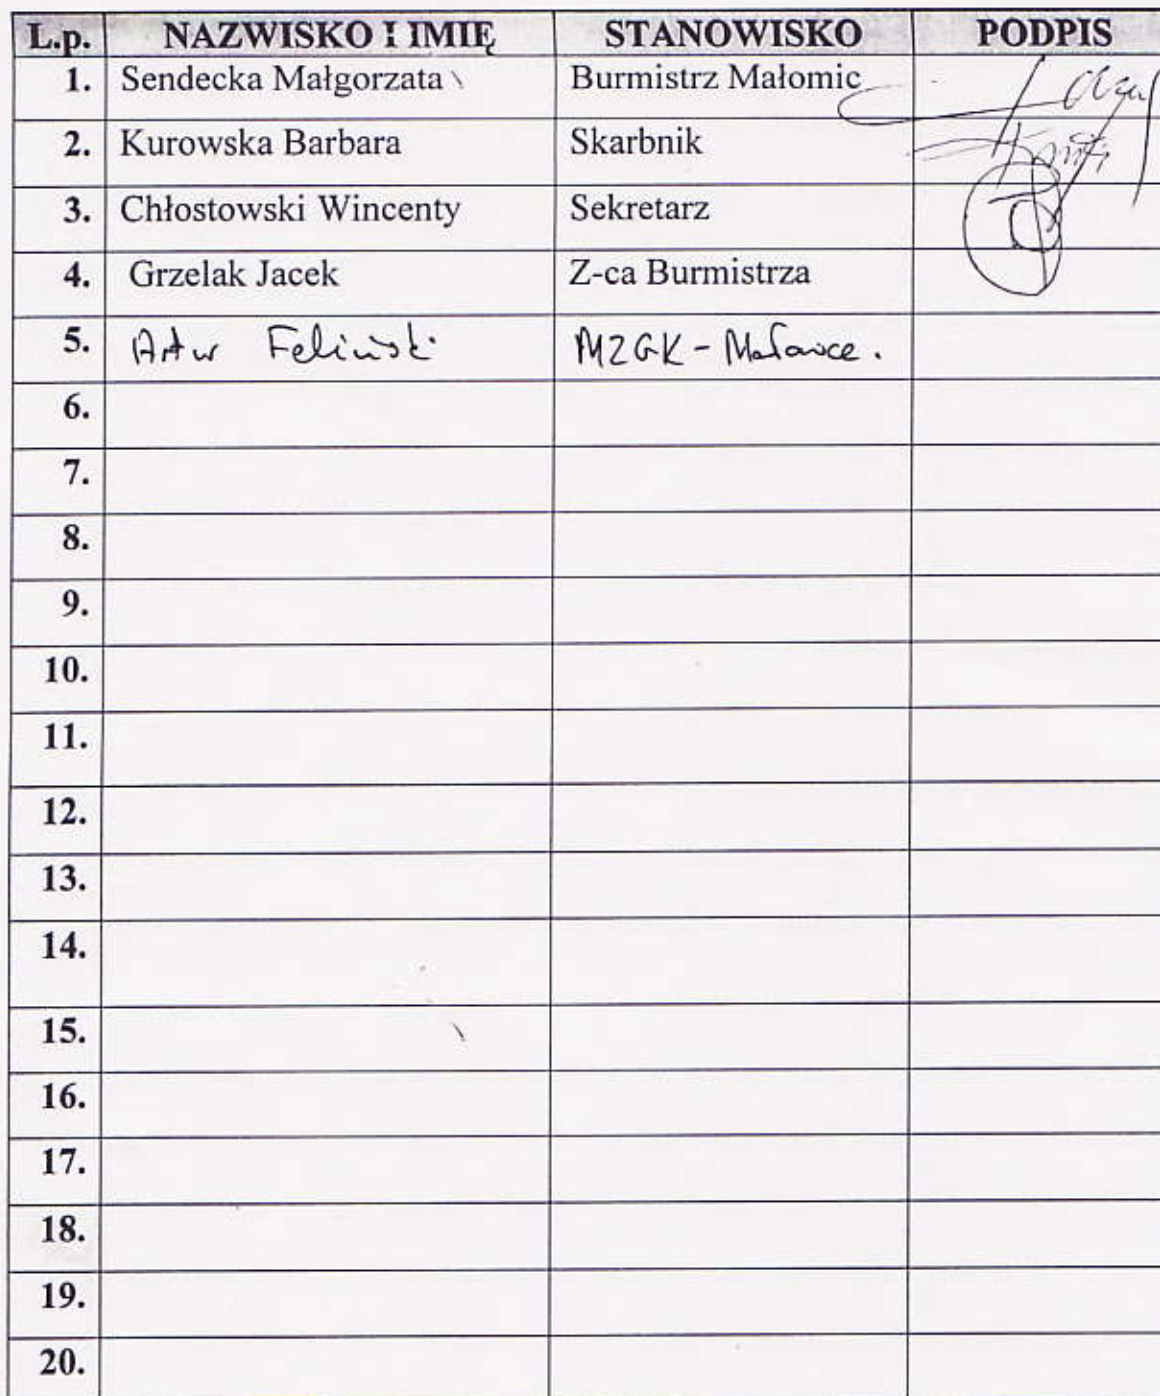 L.p. NAZWISKO I IMIĘ STANOWISKO PODPIS
1. Sendecka Małgorzata Burmistrz Małomic
2. Kurowska Barbara Skarbnik
3. Chłostowski Wincenty Sekretarz
4. Grzelak Jacek Z-ca Burmistrza
5. Artur Feliński MZGK -
6.
7.
8.
9.
10.
11.
12.
13.
14.
15.
16.
17.
18.
19.
20.